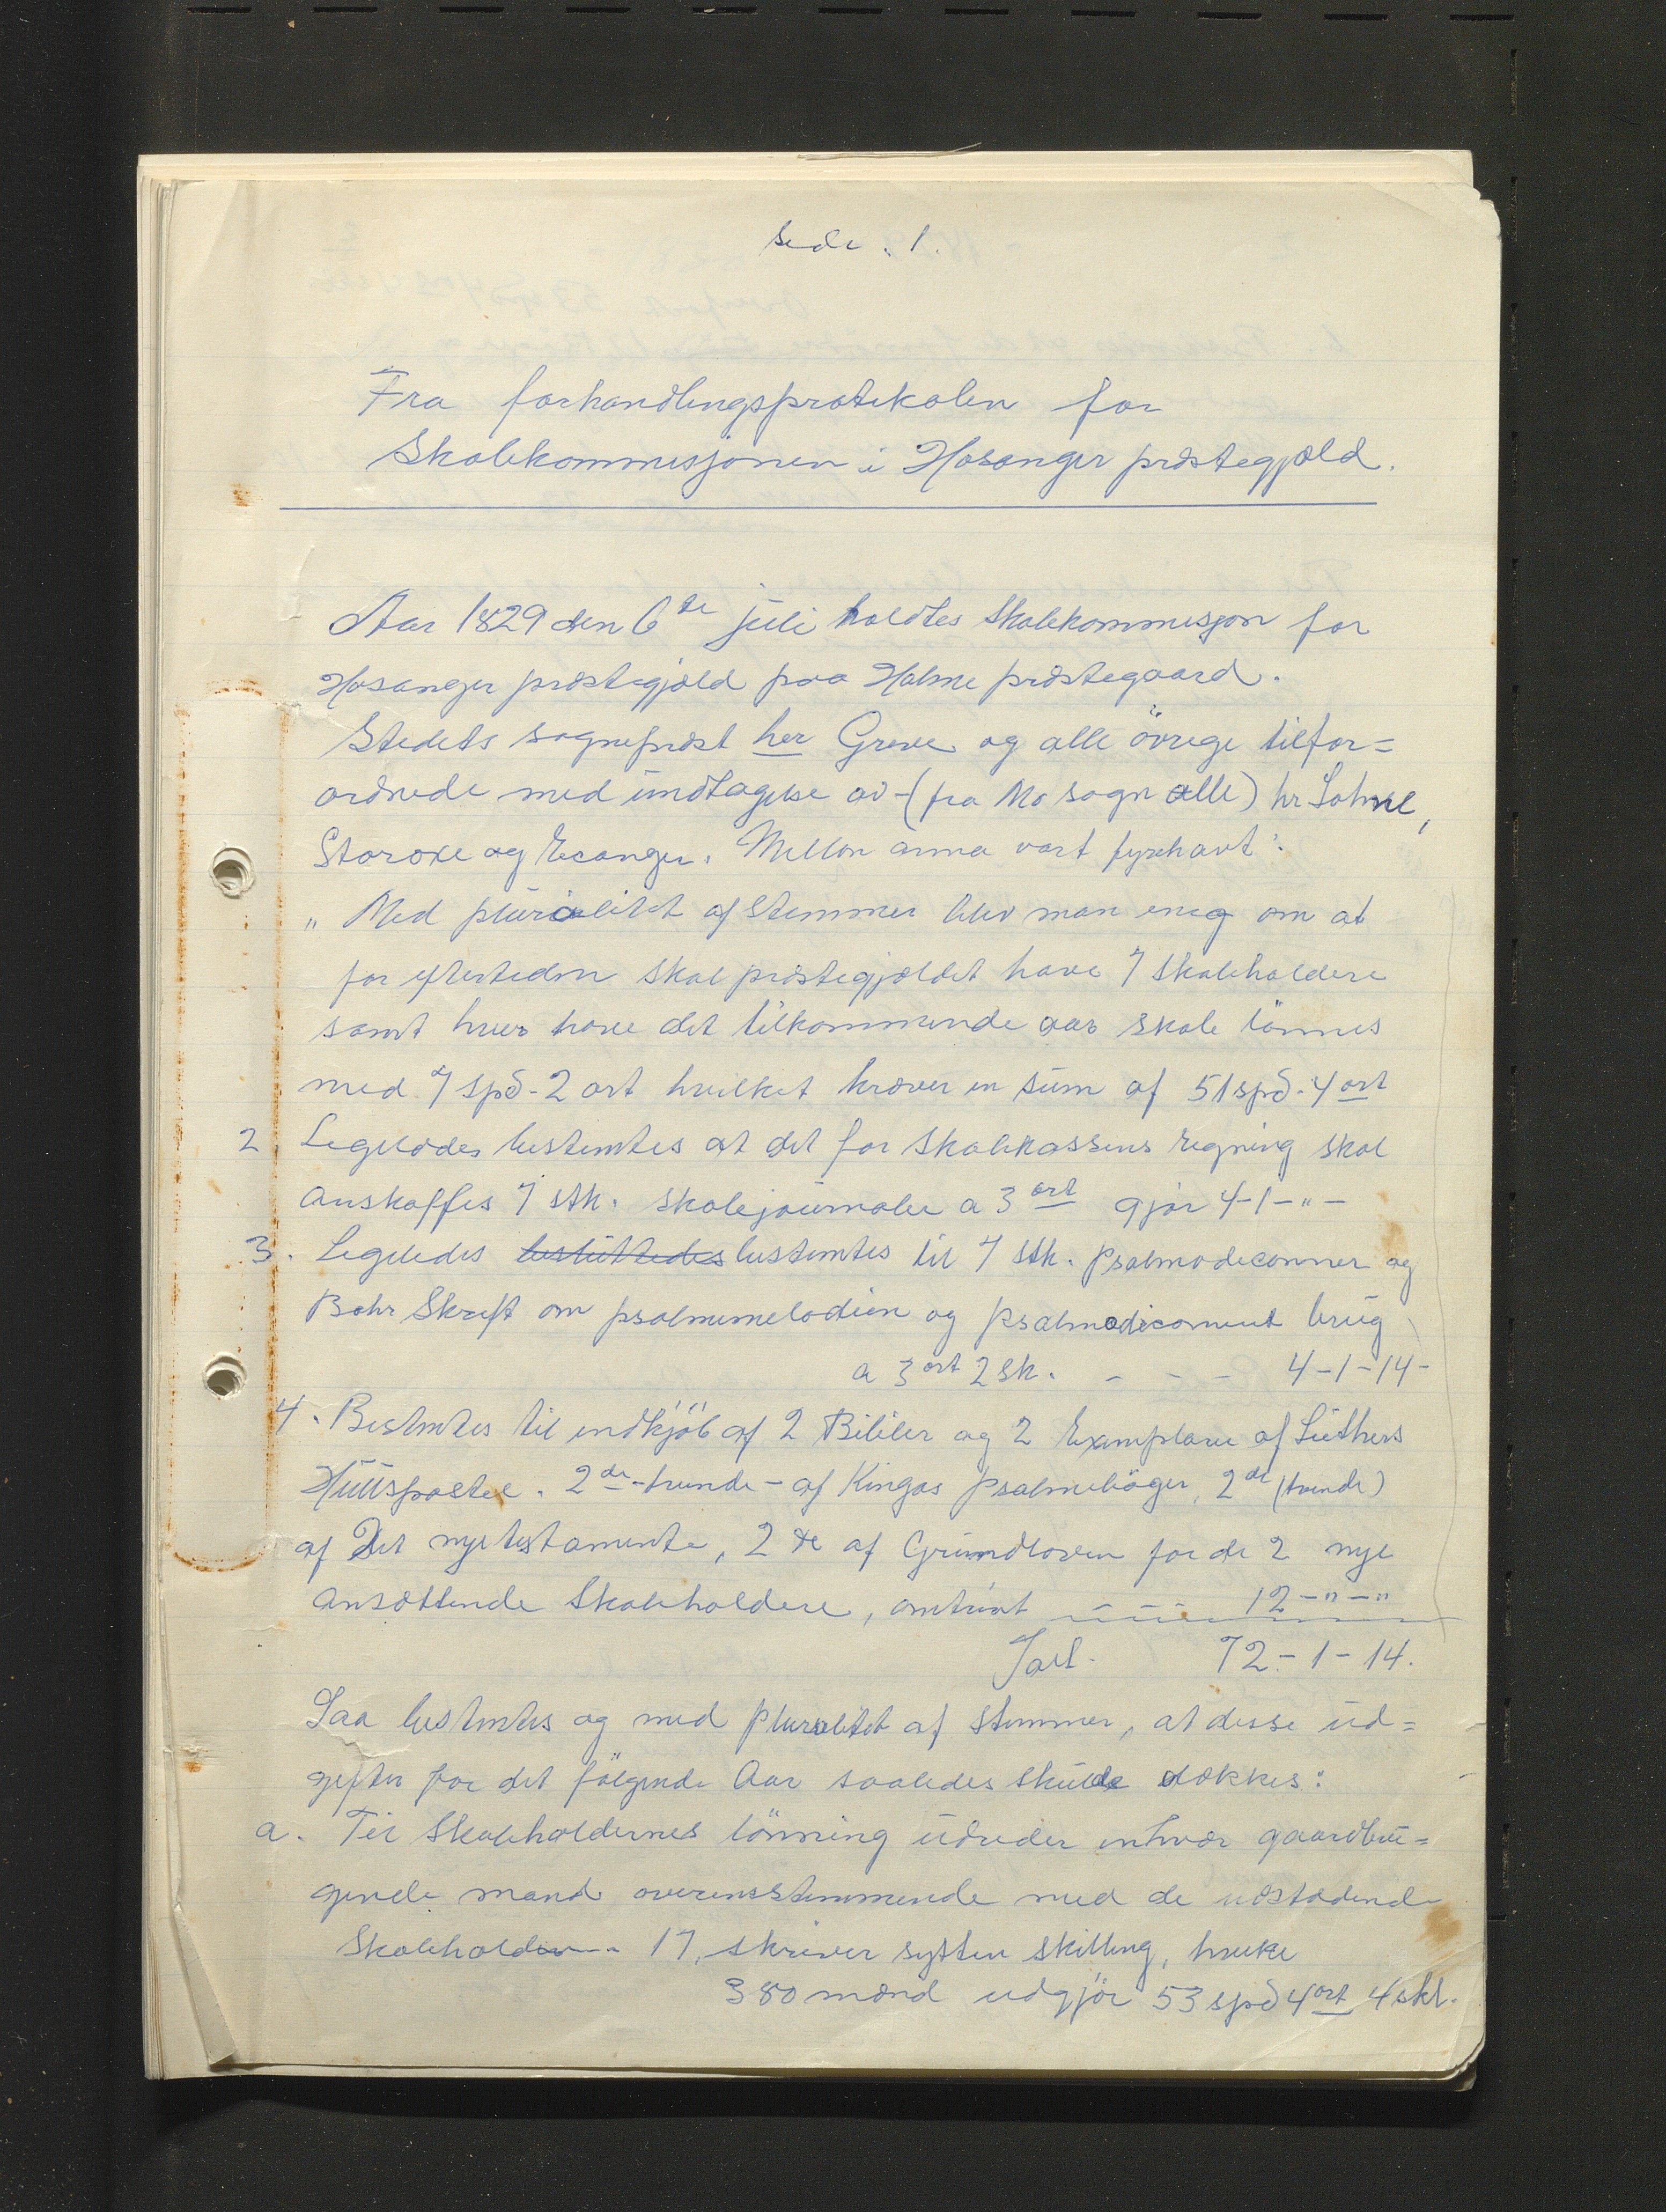 Side. 1.
Fra forhandlingsprotokolen for
Skolekommisjonen i Hosanger præstegjæld.
Aar 1829 den 6te juli holdtes Skolekommisjon for
Hosanger præstegjæld paa Holme præstegaard.
Stedets sognepræst her Greve og alle övrige tilfor=
ordnede med undtagelse av - (fra Mo sogn alle) hr
Storoxe og Eicanger. Mellon anna vart fyrehavt:
„ Med pluralitet af Stemmer blev man enig om at
for eftertiden skal præstegjældet have 7 skoleholdere
samt hver have det tilkommende aar skole lönnes
med 7 spd - 2 ort hvilket kræver en sum af 51 spd - 4 ort
2 Ligeledes bestemtes at det for skolekassens regning skal
anskaffes 7 stk. skolejournaler a 3 ort gjör 4-1-"-
3. Ligeledes besluttedes bestemtes til 7 stk. psalmodiconner og
Bohr Skrift om psalmemelodien og psalmodiconnet brug
a 3 ort 2 sk. - - - 4-1-14-
4. Bestemtes til indkjöb af 2 Bibler og 2 Exemplarer af Luthers
Huuspostel. 2de - tvende - af Kingos psalmeböger, 2de (tvende)
af Det nye testamente, 2de af Grundloven for de 2 nye
ansættende Skoleholdere, omtrent 12-"-"
Ialt. 72-1-14.
Saa bestemtes og med pluralitet af stemmer, at disse ud=
gifter for det fölgende Aar saaledes skulde dækkes:
a. Til Skoleholdernes lönning udreder enhver gaardbru=
gende mand overensstemmende med de
Skoleholder 17, skriver sytten skilling, hvilke
380 mænd udgjör 53 spd 4 ort 4 skl.